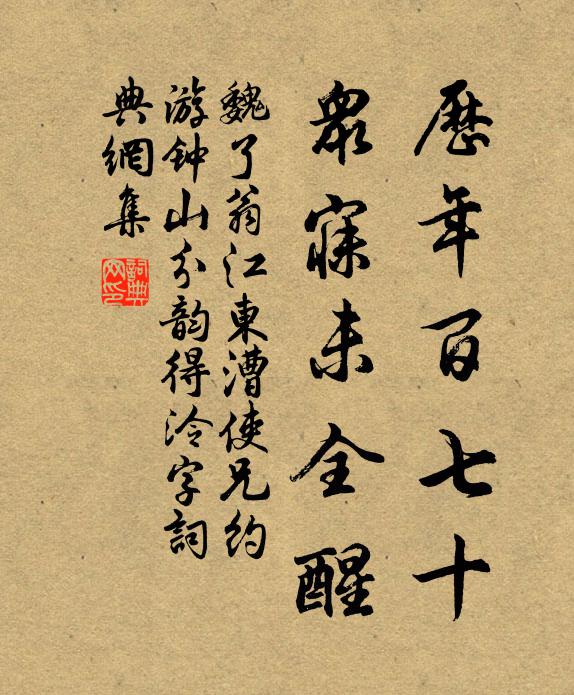 歷年百七十
眾寐未全醒
魏了翁江東漕使兄約
游钟山分韵得泠字詞
典網集
詞典網印